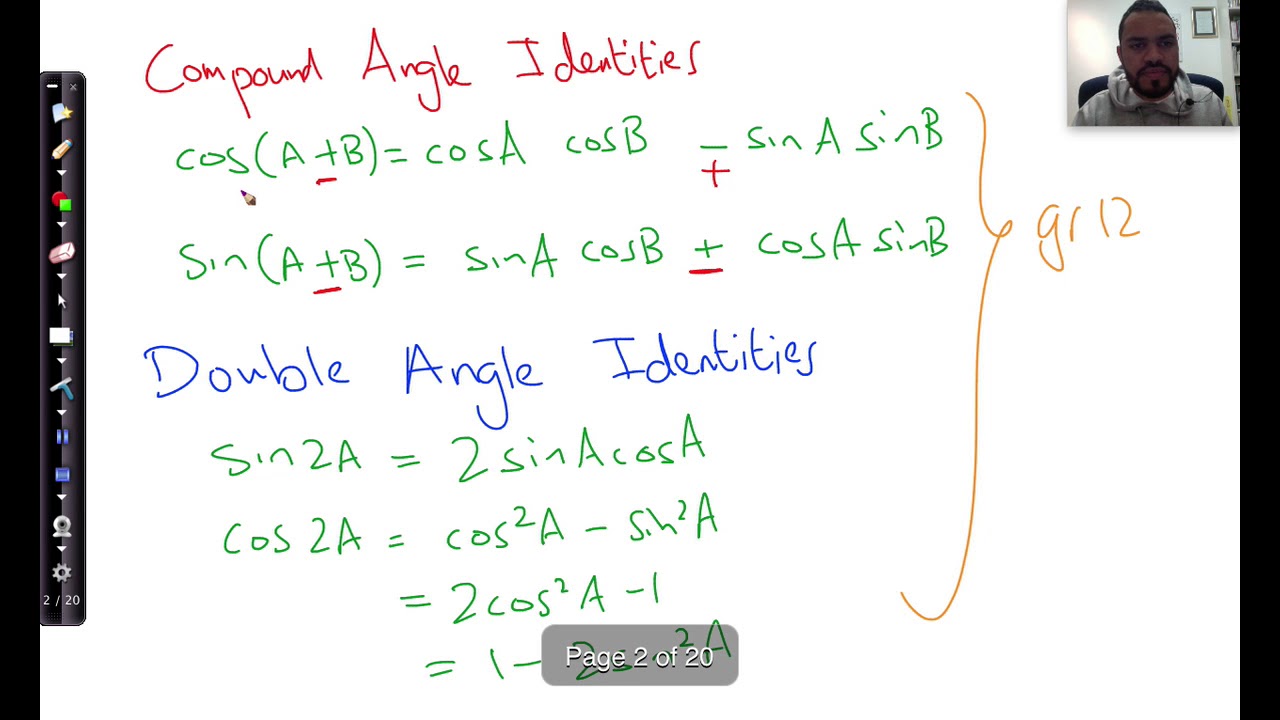 Compound Angle Identities
cos(A ± B) = cosA cosB ∓ sinA sinB
sin(A ± B) = sinA cosB ± cosA sinB
gr 12
Double Angle Identities
sin2A = 2sinAcosA
cos2A = cos²A - sin²A
= 2cos²A - 1
= 1 - ²A
Page 2 of 20
2 / 20